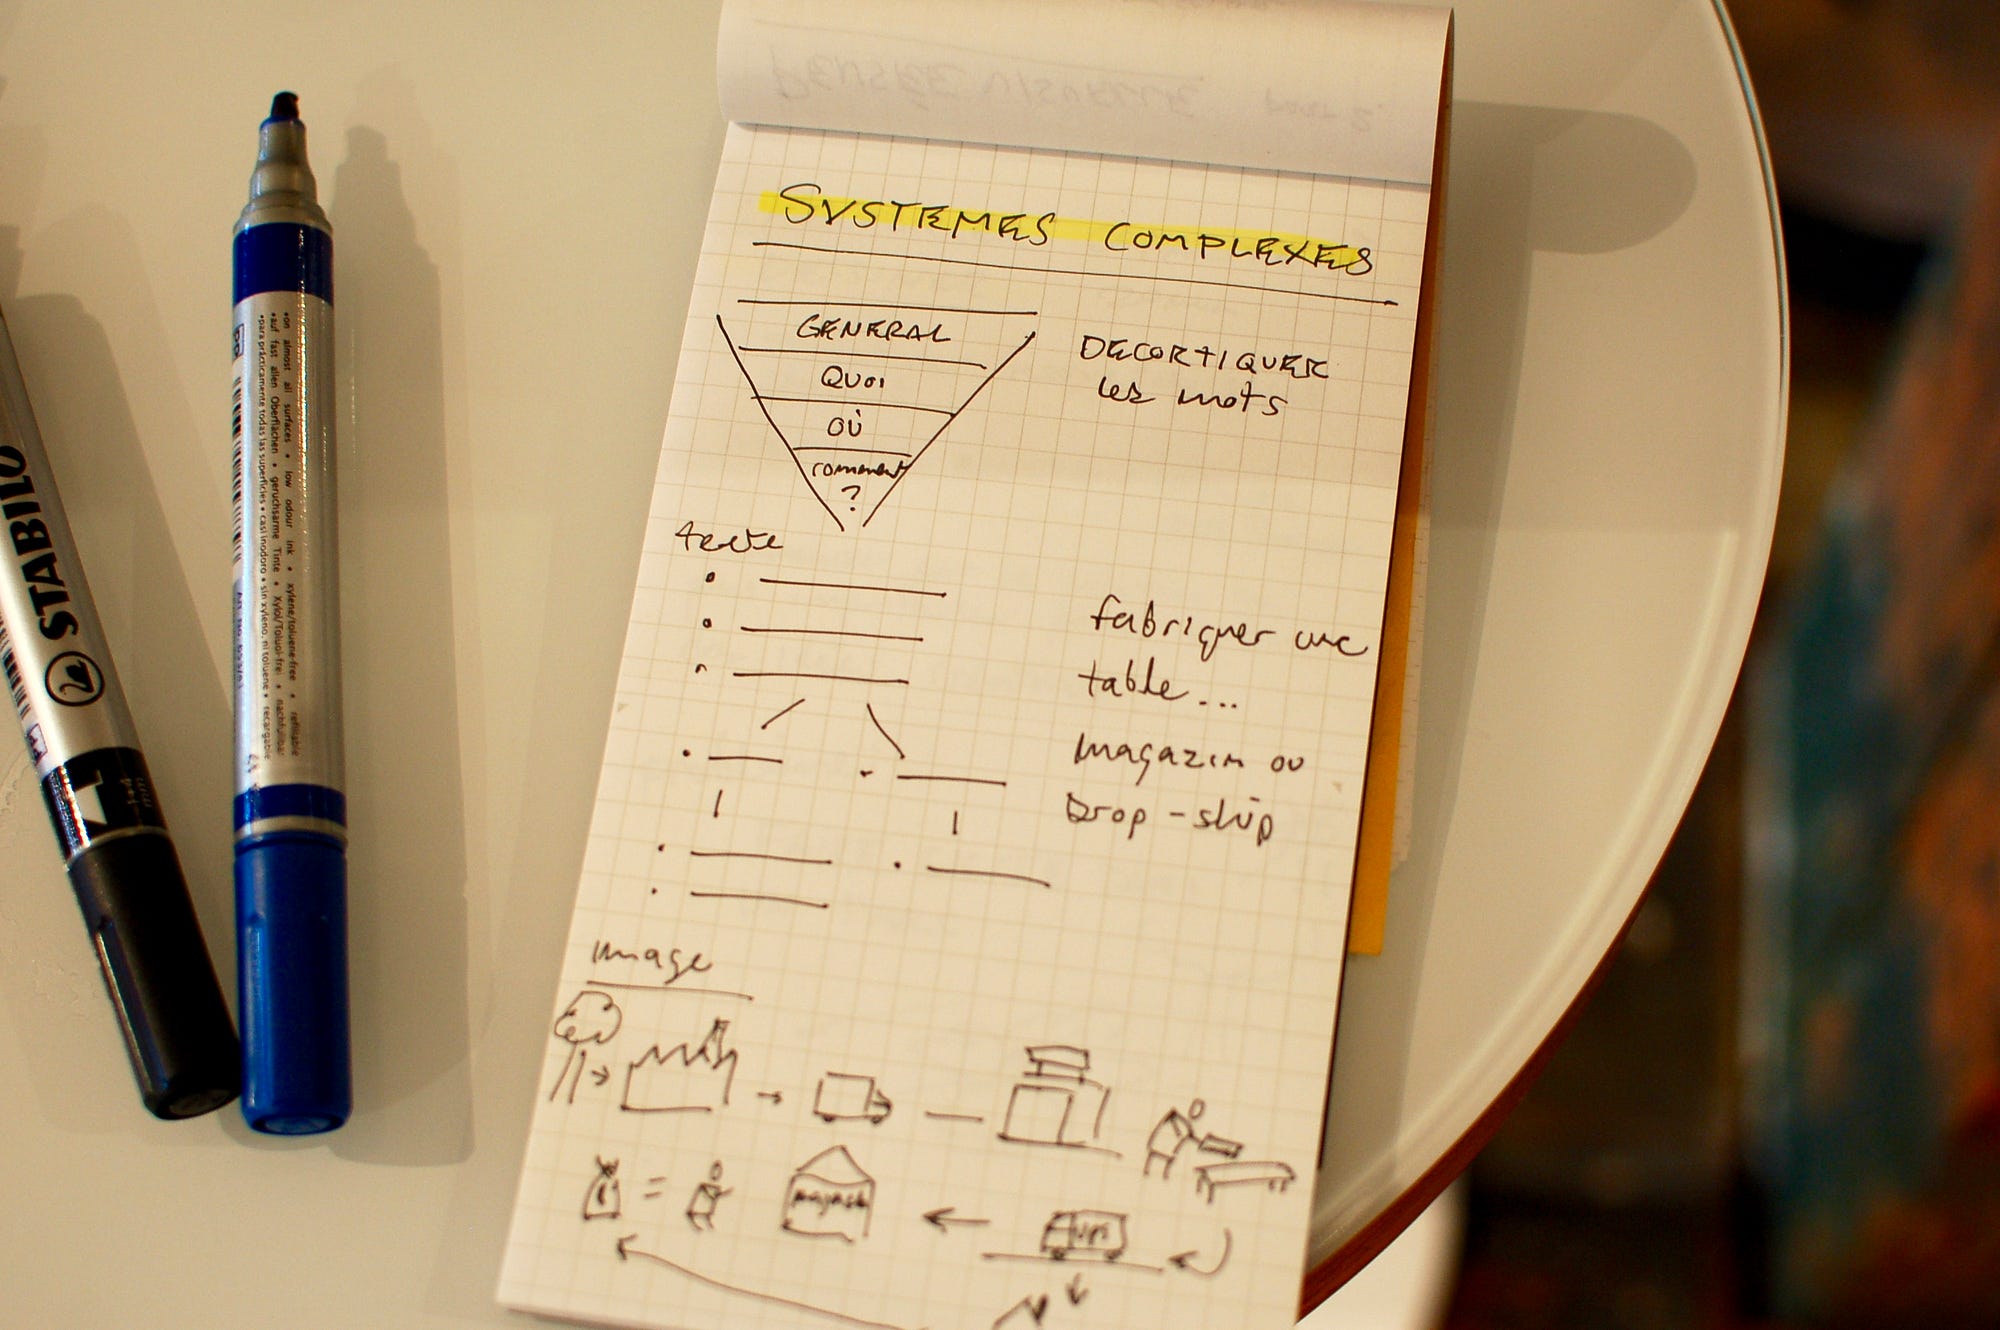 PENSÉE VISUELLE PART 2.
SYSTEMES COMPLEXES
GENERAL
QUOI
OÙ
comment
?
DECORTIQUER
les mots
texte
fabriquer une
table...
magazin ou
Drop-ship
image
magasin
UPS
STABILO
•on almost all surfaces • low odour ink • xylene/toluene-free • refillable
•auf fast allen Oberflächen • geruchsarme Tinte • Xylol/Toluol-frei • nachfüllbar
•para prácticamente todas las superficies • casi inodoro • sin xyleno, ni tolueno • recargable